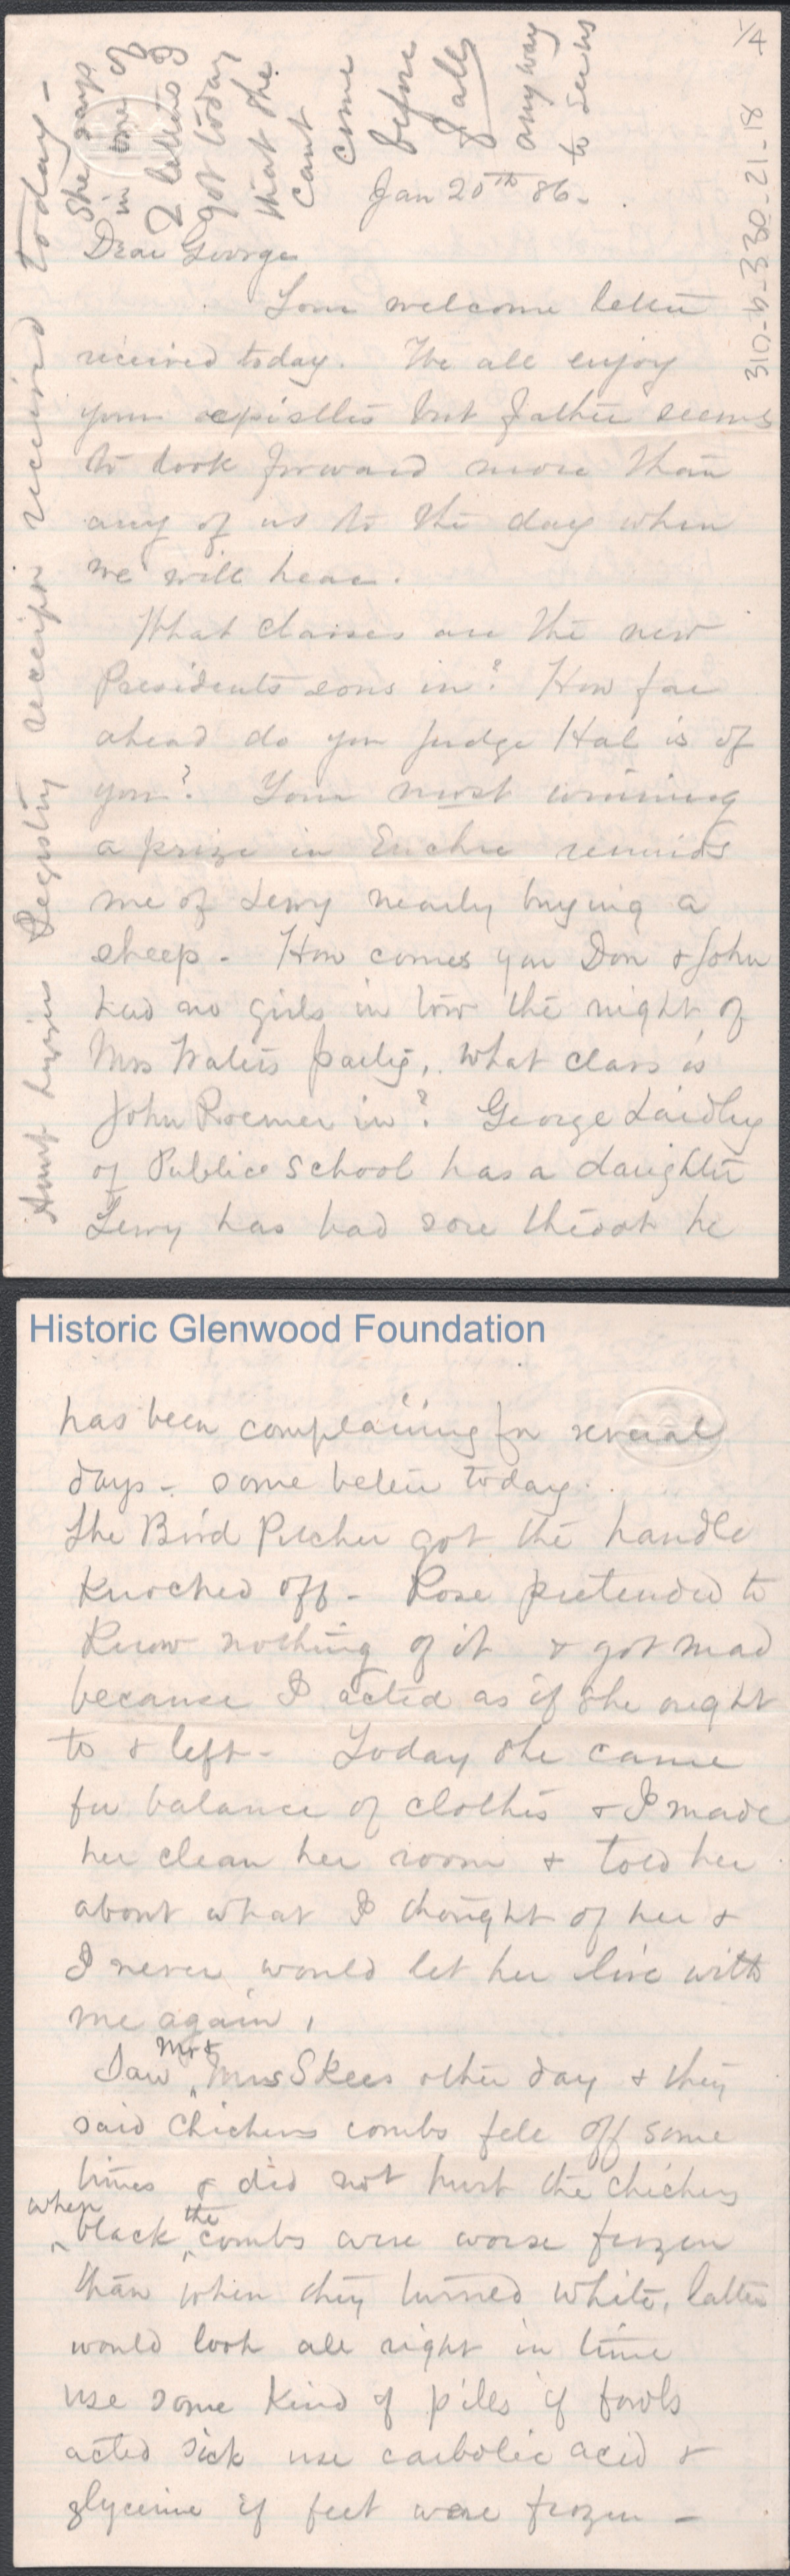 1/4
310-b-330-21-18
She says
in one of
2 letters I
got today
that she
cant
come
before
fall
anyway
to see us
Aunt Lizzies Registry receipt received today -
Jan 20th 86.
Dear George
Your welcome letter
received today. We all enjoy
your epistles but father seems
to look forward more than
any of us to the day when
we will hear.
What classes are the new
Presidents sons in? How far
ahead do you judge Hal is of
you? Your most winning
a prize in Euchre reminds
me of Lewy nearly buying a
sheep - How comes you Don & John
had no girls in tow the night of
Mrs Walters party, what class is
John Roemer in? George Laidley
of Publice School has a daughter
Lewy has bad sore throat he
Historic Glenwood Foundation
has been complaining for several
days - some better today.
The Bird Pitcher got the handle
knocked off - Rose pretended to
know nothing of it & got mad
because I acted as if she ought
to & left - Today she came
for balance of clothes & I made
her clean her room & told her
about what I thought of her &
I never would let her live with
me again,
Saw Mr & Mrs Skees other day & they
said Chickens combs fell off some
times & did not hurt the chickens
when black the combs were worse frozen
than when they turned white, latter
would look all right in time
use some kind of piles if fowls
acted sick use carbolic acid &
glycerine if feet were frozen -